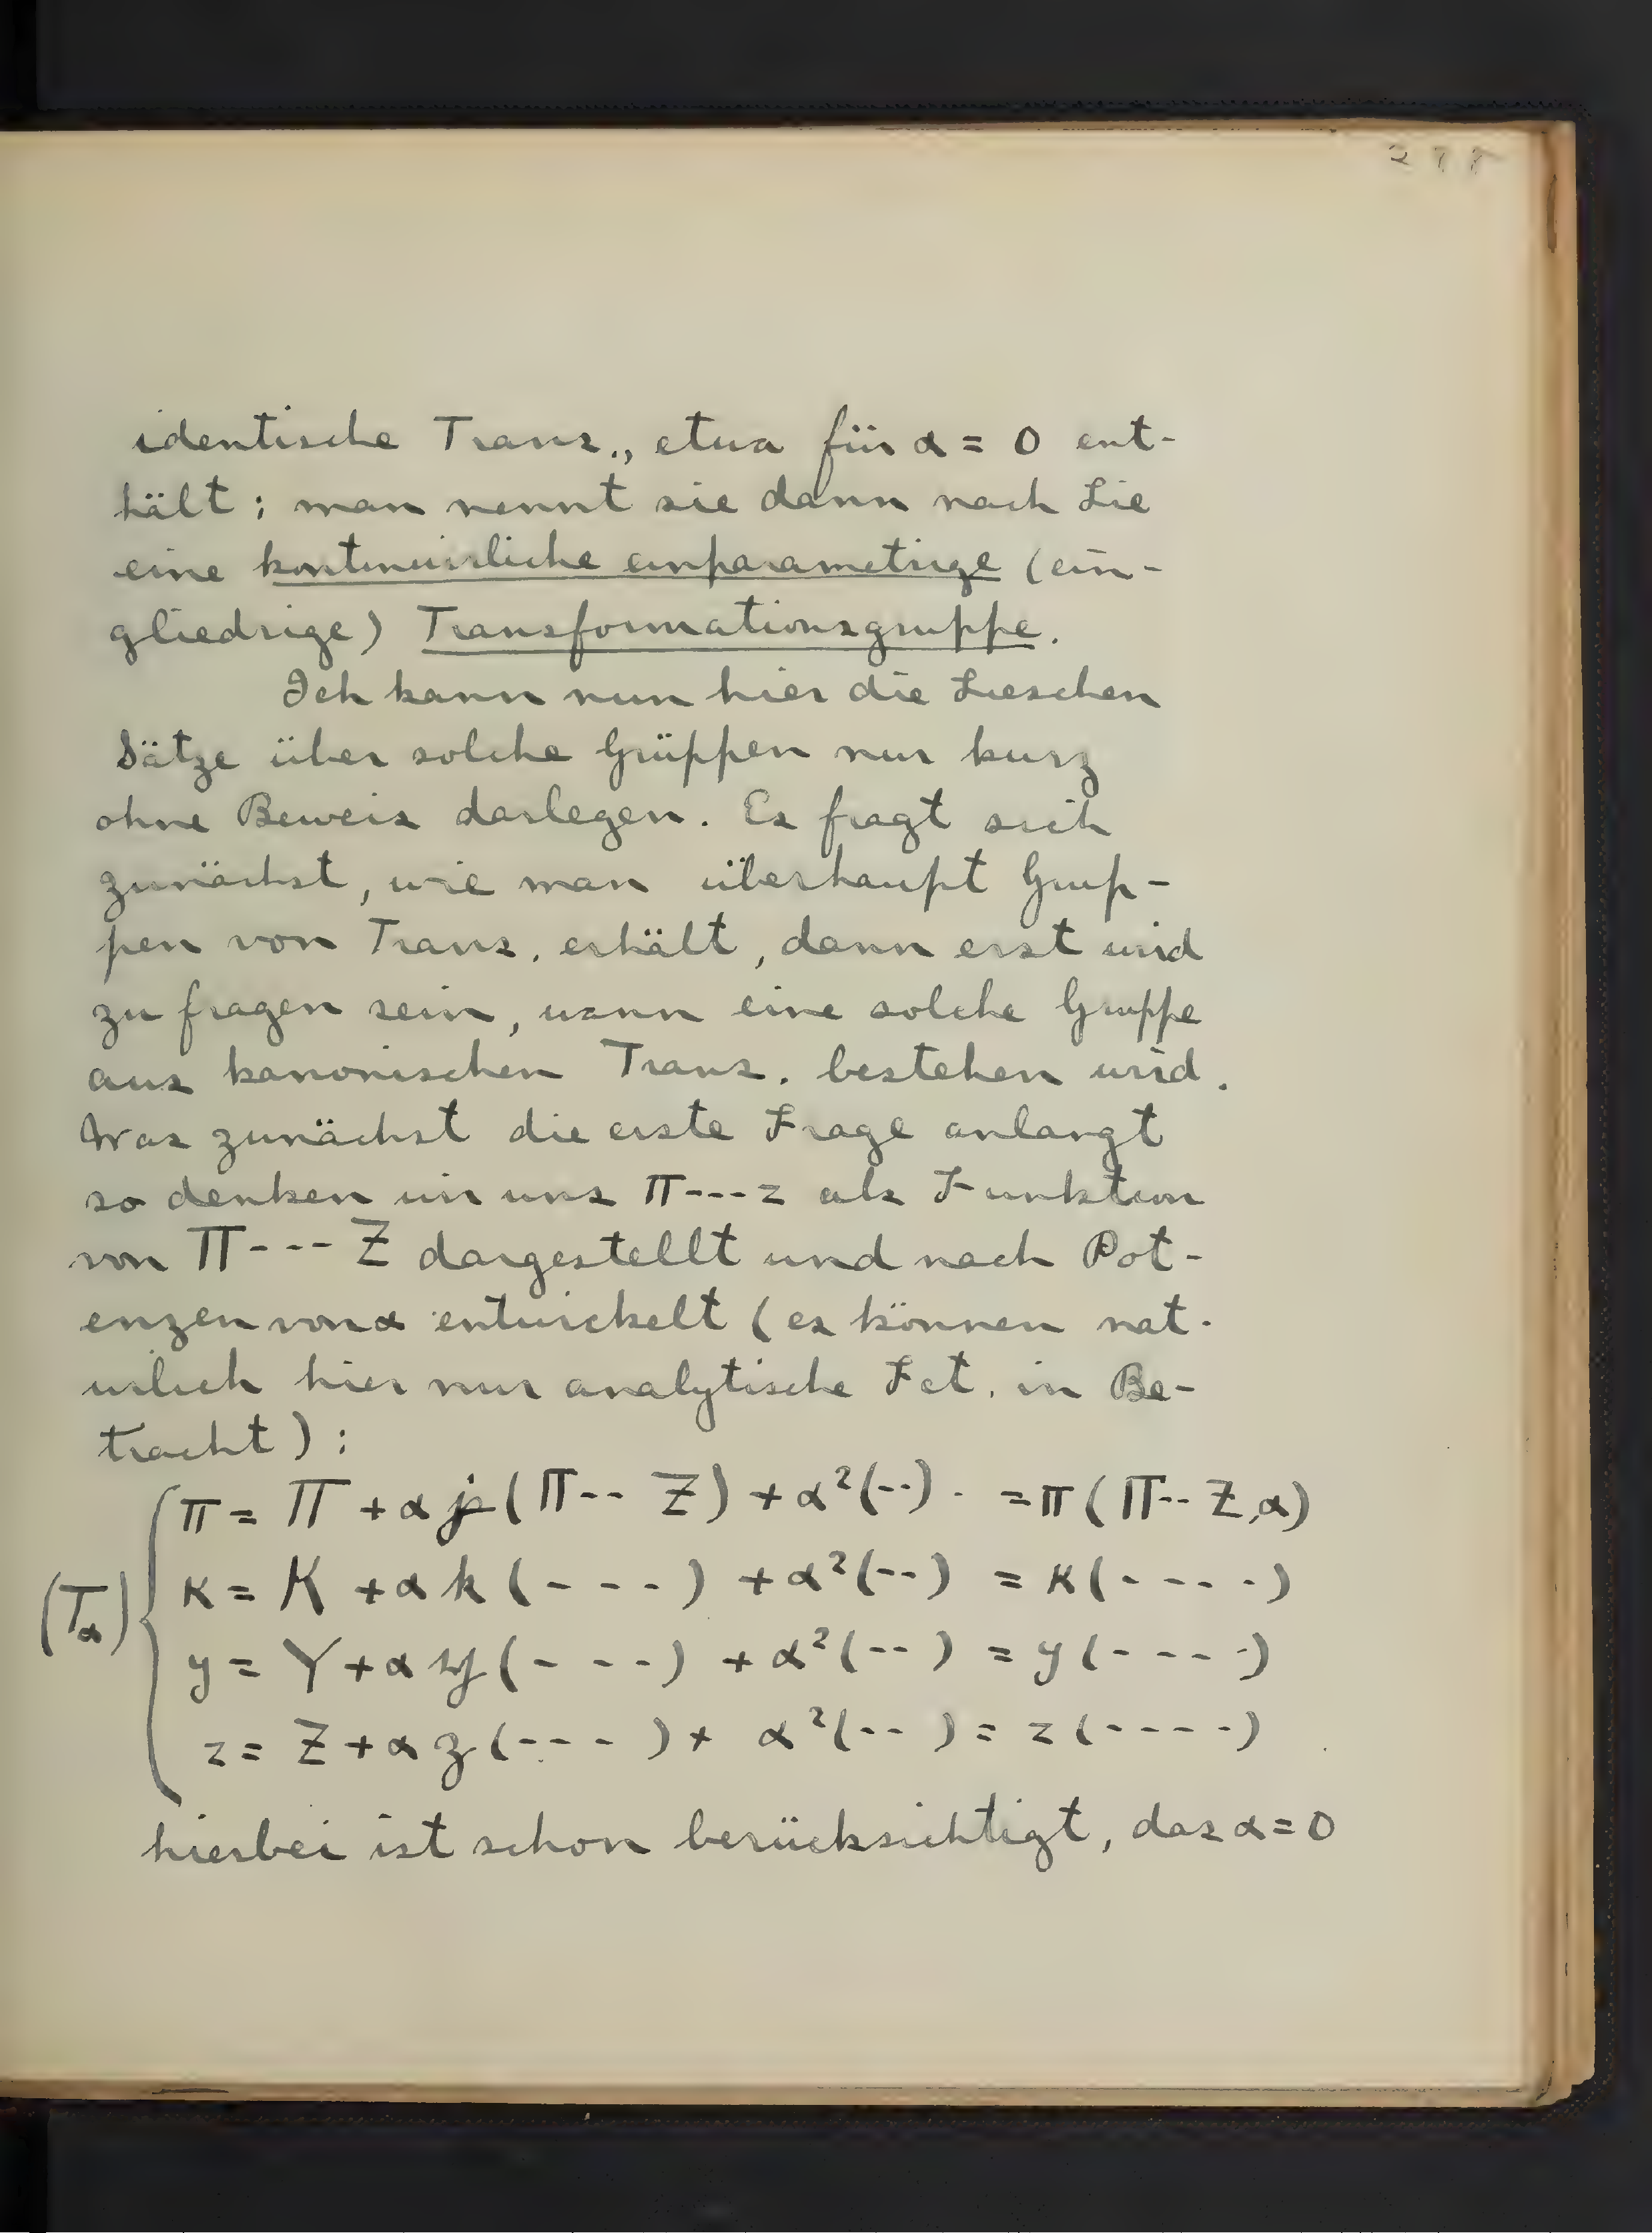 identische Trans., etwa für α = 0 ent-
hält; man nennt sie dann nach Lie
eine kontinuirliche einparametrige (ein-
gliedrige) Transformationsgruppe.
Ich kann nun hier die Lieschen
Sätze über solche Grüppen nur kurz
ohne Beweis darlegen. Es fragt sich
zunächst, wie man überhaupt Grup-
pen von Trans. erhält, dann erst wird
zu fragen sein, wann eine solche Gruppe
aus kanonischen Trans. bestehen wird.
Was zunächst die erste Frage anlangt
so denken wir uns π---z als Funktion
von Π---Z dargestellt und nach Pot-
enzen von α entwickelt (es können nat-
ürlich hier nur analytische Fct. in Be-
tracht):
π = Π + α p(Π-- Z) + α²(--). = π(Π-- Z,α)
(Tα) κ = K + α k(---) + α²(--) = κ(----)
y = Y + α y(---) + α²(--) = y(----)
z = Z + α z(---) + α²(--) = z(----)
hierbei ist schon berücksichtigt, das α = 0